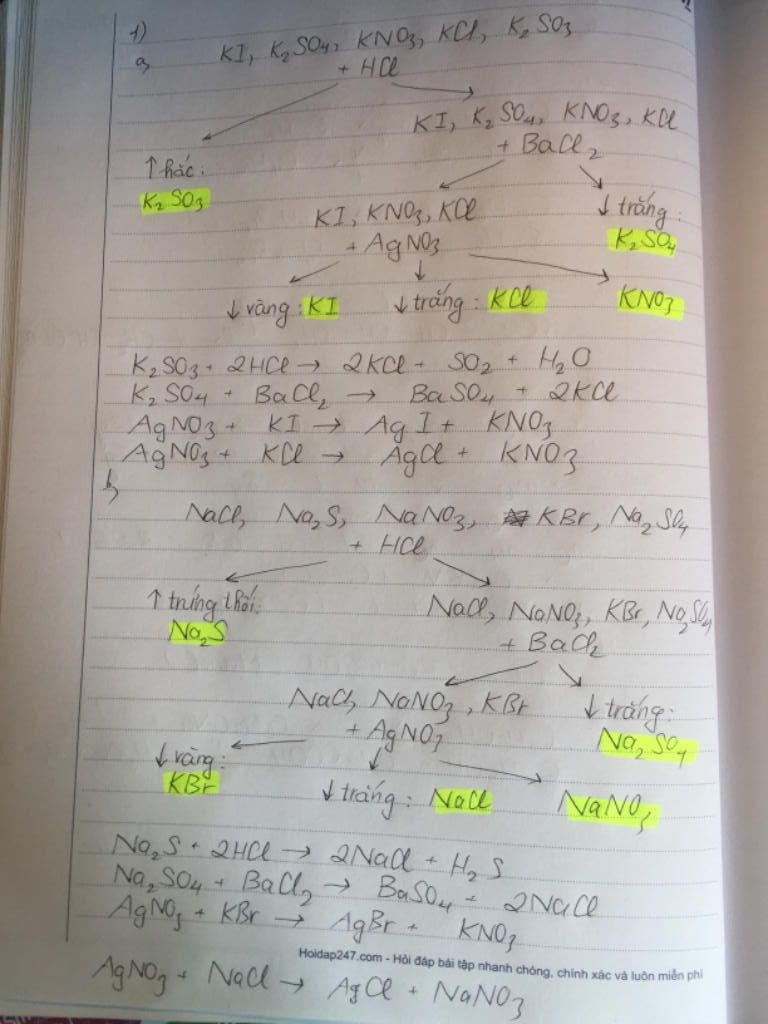 1)
a, KI, K₂SO₄, KNO₃, KCl, K₂SO₃
+ HCl
KI, K₂SO₄, KNO₃, KCl
+ BaCl₂
↑ hắc:
K₂SO₃
KI, KNO₃, KCl
+ AgNO₃
↓ trắng:
K₂SO₄
↓ vàng: KI ↓ trắng: KCl KNO₃
K₂SO₃ + 2HCl → 2KCl + SO₂ + H₂O
K₂SO₄ + BaCl₂ → BaSO₄ + 2KCl
AgNO₃ + KI → AgI + KNO₃
AgNO₃ + KCl → AgCl + KNO₃
b,
NaCl, Na₂S, NaNO₃, KBr, Na₂SO₄
+ HCl
↑ trứng thối:
Na₂S
NaCl, NaNO₃, KBr, Na₂SO₄
+ BaCl₂
NaCl, NaNO₃, KBr
+ AgNO₃
↓ trắng:
Na₂SO₄
↓ vàng:
KBr
↓ trắng: NaCl NaNO₃
Na₂S + 2HCl → 2NaCl + H₂S
Na₂SO₄ + BaCl₂ → BaSO₄ + 2NaCl
AgNO₃ + KBr → AgBr + KNO₃
Hoidap247.com - Hỏi đáp bài tập nhanh chóng, chính xác và luôn miễn phí
AgNO₃ + NaCl → AgCl + NaNO₃